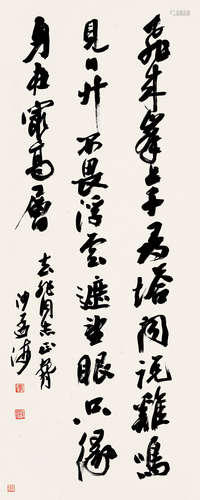 飛来峯上千尋塔聞説雞鳴
見日升不畏浮雲遮望眼只緣
身在最高層
去非同志正
沙孟海